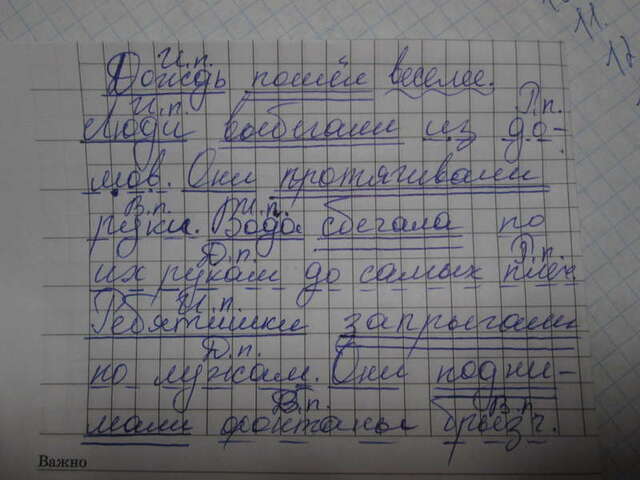 10.
11.
12
И.п.
Дождь пошёл веселее.
И.п. Р.п.
Люди выбегали из до-
мов. Они протягивали
В.п. И.п.
руки. Вода сбегала по
Д.п. Р.п.
их рукам до самых плеч
И.п.
Ребятишки запрыгали
Д.п.
по лужам. Они подни-
В.п. В.п.
мали фонтаны брызг.
Важно